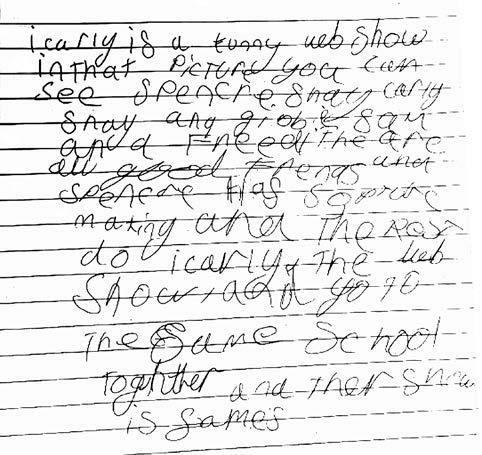 icarly is a funny web show
in that picture you can
see spencre shay carly
shay and gibbie sam
and a Freedi The are
all good Frends and
spencre Has
making and The Rest
do icarly, The web
Show, and go to
The Same School
together and ther show
is fames